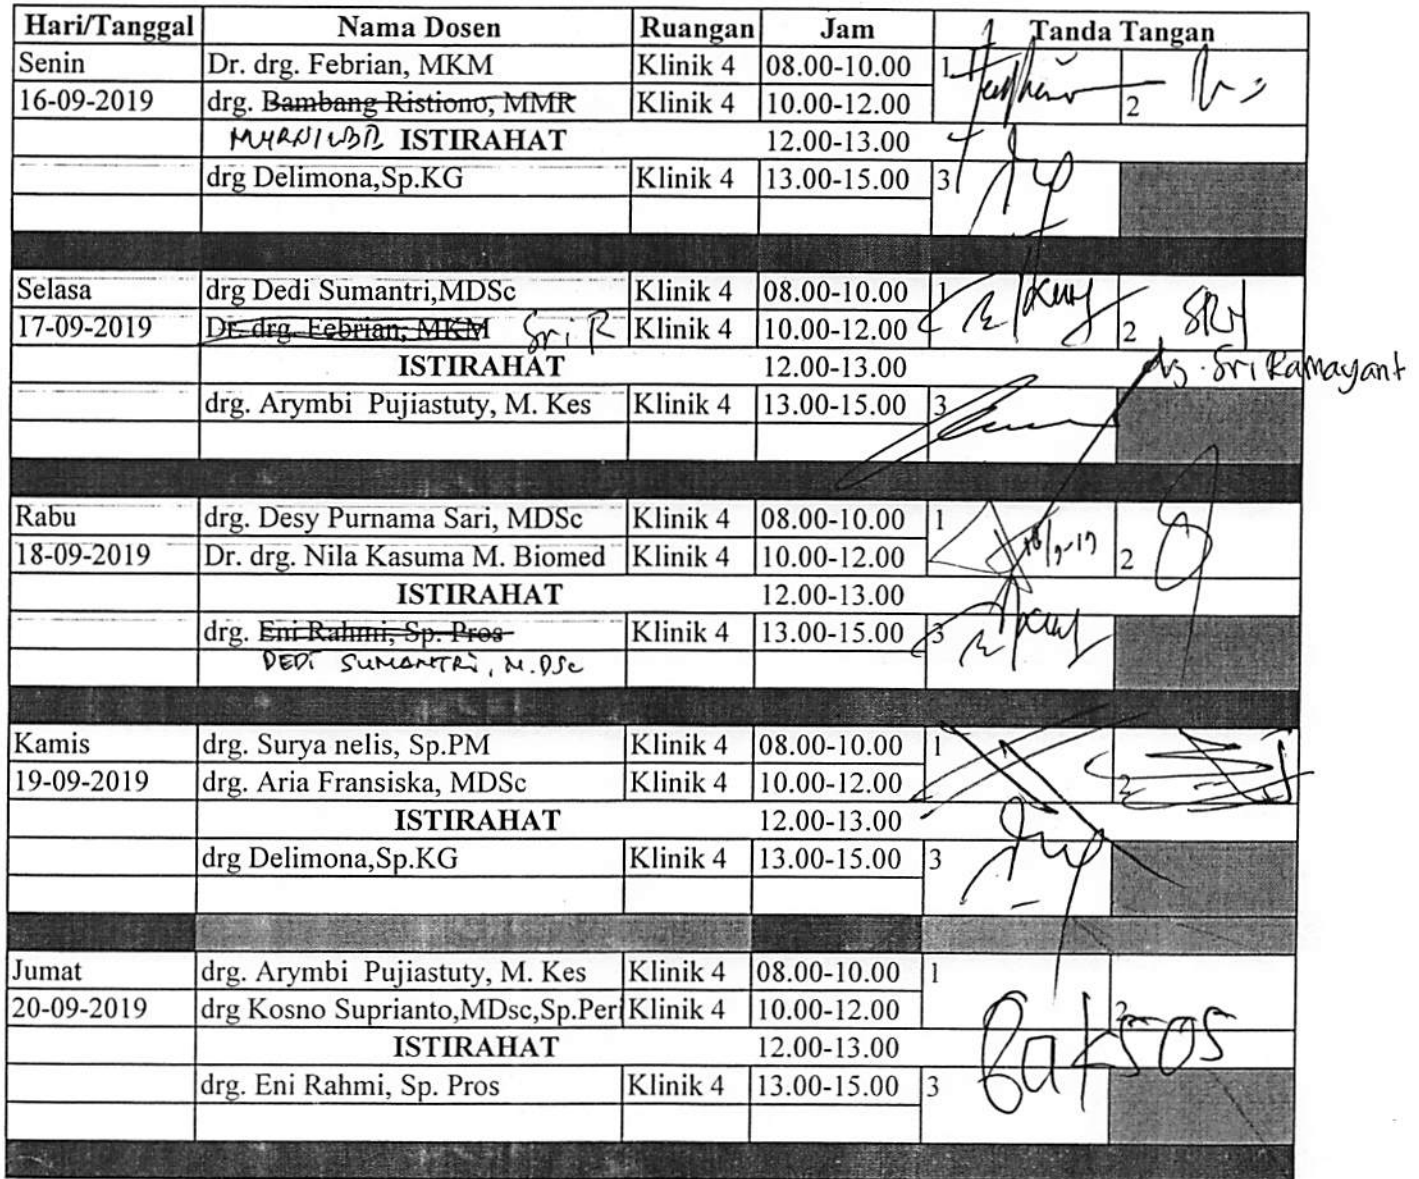 Hari/Tanggal Nama Dosen Ruangan Jam Tanda Tangan
Senin Dr. drg. Febrian, MKM Klinik 4 08.00-10.00 1
16-09-2019 drg. Bambang Ristiono, MMR Klinik 4 10.00-12.00 2
ISTIRAHAT 12.00-13.00
drg Delimona,Sp.KG Klinik 4 13.00-15.00 3
Selasa drg Dedi Sumantri,MDSc Klinik 4 08.00-10.00 1
17-09-2019 Dr. drg. Febrian, MKM Sri R Klinik 4 10.00-12.00 2 SRY
ISTIRAHAT 12.00-13.00 drg. Sri Ramayant
drg. Arymbi Pujiastuty, M. Kes Klinik 4 13.00-15.00 3
Rabu drg. Desy Purnama Sari, MDSc Klinik 4 08.00-10.00 1
18-09-2019 Dr. drg. Nila Kasuma M. Biomed Klinik 4 10.00-12.00 18/9-19 2
ISTIRAHAT 12.00-13.00
drg. Eni Rahmi, Sp. Pros Klinik 4 13.00-15.00 3
DEDI SUMANTRI, M.DSc
Kamis drg. Surya nelis, Sp.PM Klinik 4 08.00-10.00 1
19-09-2019 drg. Aria Fransiska, MDSc Klinik 4 10.00-12.00 2
ISTIRAHAT 12.00-13.00
drg Delimona,Sp.KG Klinik 4 13.00-15.00 3
Jumat drg. Arymbi Pujiastuty, M. Kes Klinik 4 08.00-10.00 1
20-09-2019 drg Kosno Suprianto,MDsc,Sp.Peri Klinik 4 10.00-12.00 2
ISTIRAHAT 12.00-13.00 Baksos
drg. Eni Rahmi, Sp. Pros Klinik 4 13.00-15.00 3